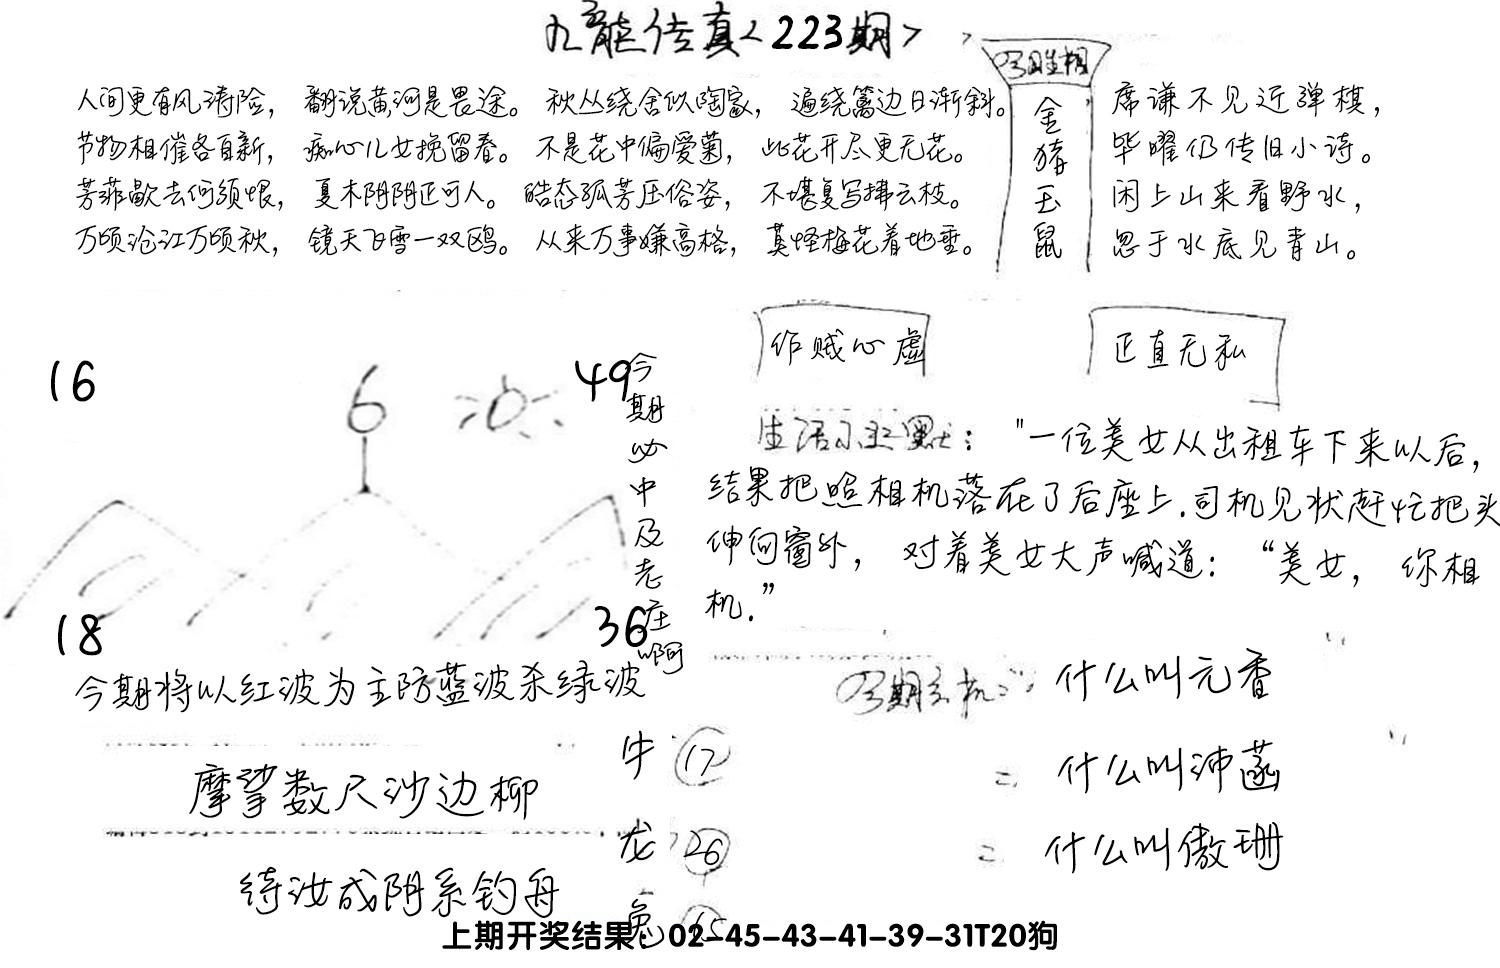 九龍传真<223期>
人间更有风涛险，翻说黄河是畏途。秋丛绕舍似陶家，遍绕篱边日渐斜。
节物相催各自新，痴心儿女挽留春。不是花中偏爱菊，此花开尽更无花。
芳菲歇去何须恨，夏木阴阴正可人。皓态孤芳压俗姿，不堪复写拂云枝。
万顷沧江万顷秋，镜天飞雪一双鸥。从来万事嫌高格，莫怪梅花着地垂。
今期生相
金猪玉鼠
席谦不见近弹棋，
毕曜仍传旧小诗。
闲上山来看野水，
忽于水底见青山。
16
6
49
18
36
今期必中及老庄啊
作贼心虚
正直无私
生活小幽默："一位美女从出租车下来以后，
结果把照相机落在了后座上.司机见状赶忙把头
伸向窗外，对着美女大声喊道：“美女，你相
机.”
今期将以红波为主防蓝波杀绿波
今期玄机:
什么叫元香
= 什么叫沛菡
= 什么叫傲珊
摩挲数尺沙边柳
待汝成阴系钓舟
牛 17
龙 26
兔 15
上期开奖结果：02-45-43-41-39-31T20狗